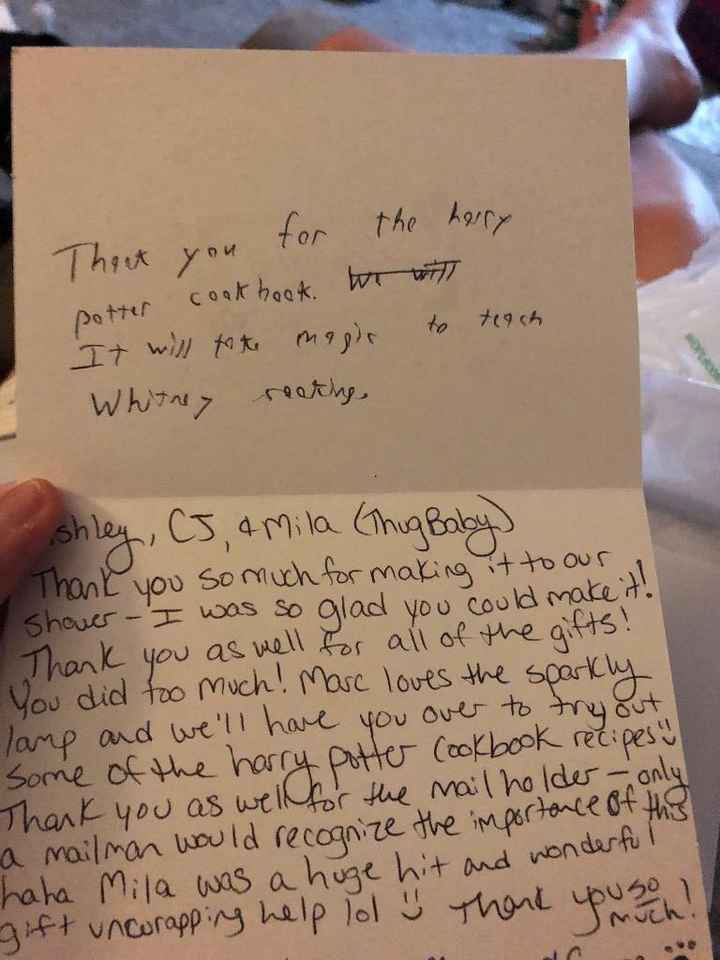 Thank you for the harry
potter cookbook. We will
It will take magic to teach
Whitney
shley, CJ, & Mila (Thug Baby)
Thank you so much for making it to our
shower - I was so glad you could make it!
Thank you as well for all of the gifts!
You did too much! Marc loves the sparkly
lamp and we'll have you over to try out
some of the harry potter cookbook recipes
Thank you as well for the mail holder - only
a mailman would recognize the importance of this
haha Mila was a huge hit and wonderful
gift unwrapping help lol Thank you so much!